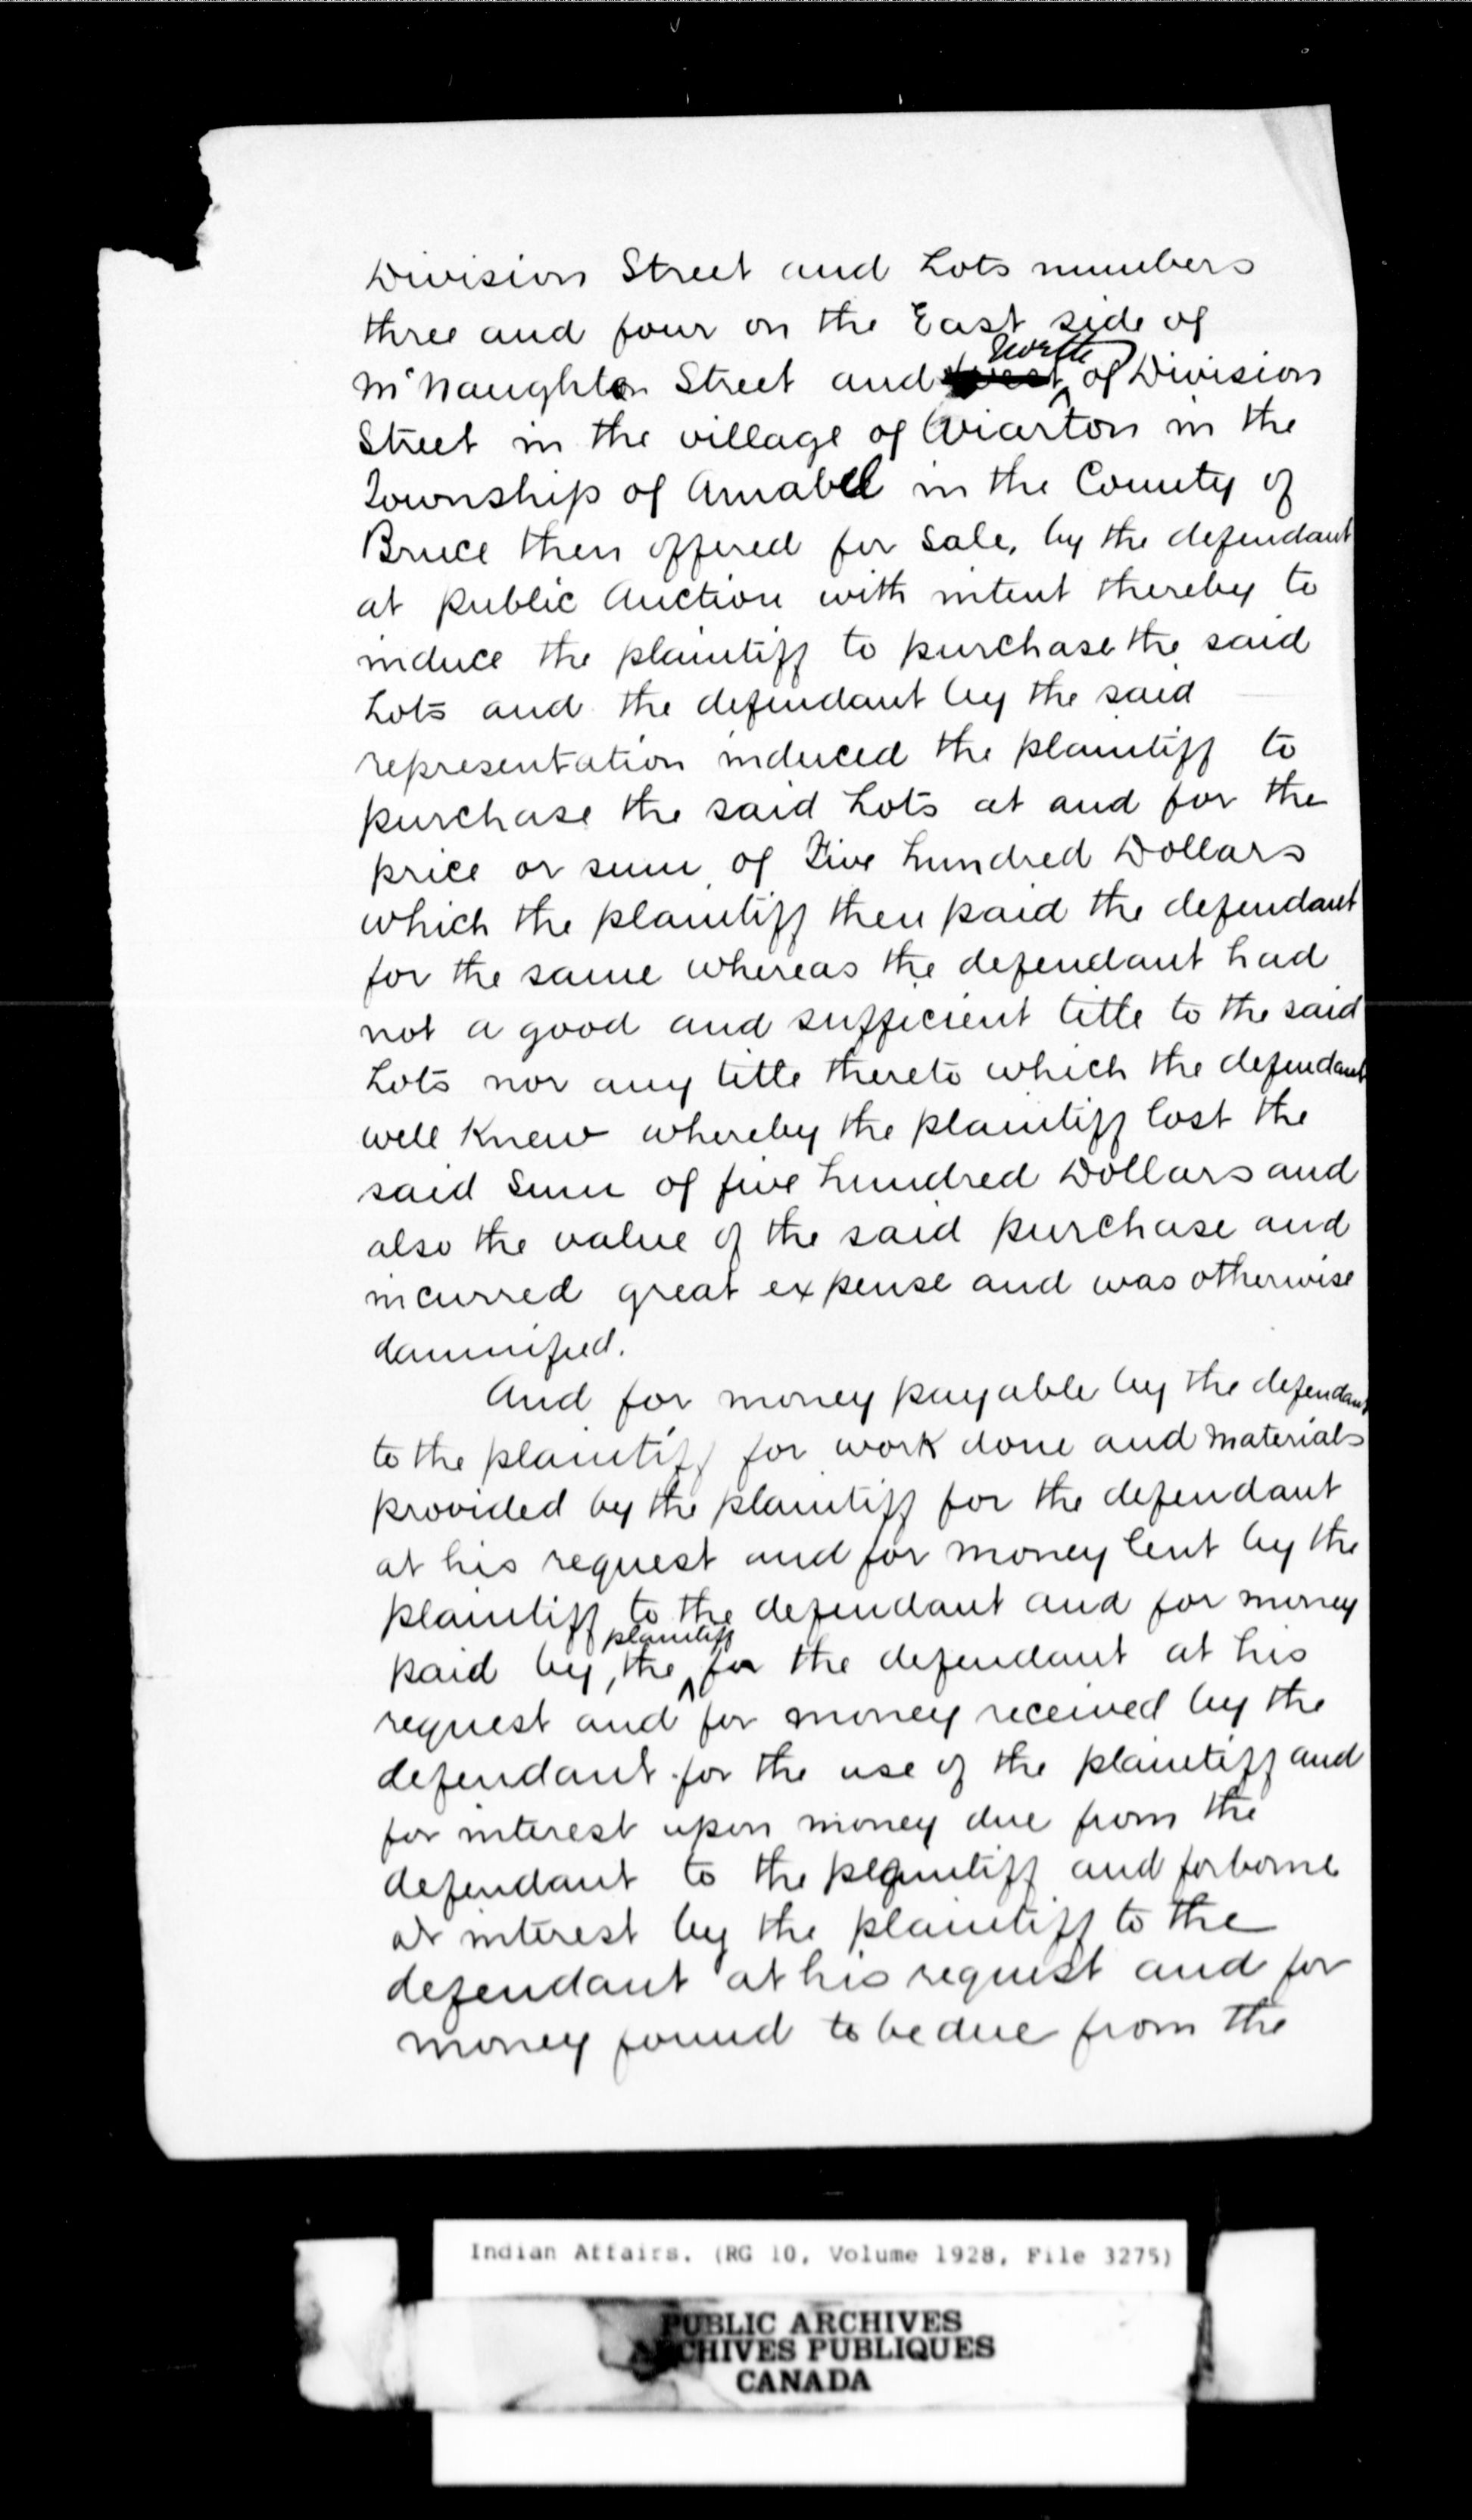 Division Street and Lots numbers
three and four on the East side of
McNaughton Street and west north of Division
Street in the village of Wiarton in the
Township of Amabel in the County of
Bruce then offered for Sale, by the defendant
at public Auction with intent thereby to
induce the plaintiff to purchase the said
Lots and the defendant by the said
representation induced the plaintiff to
purchase the said Lots at and for the
price or sum of Five hundred Dollars
which the plaintiff then paid the defendant
for the same whereas the defendant had
not a good and sufficient title to the said
Lots nor any title thereto which the defendant
well Knew whereby the plaintiff lost the
said Sum of five hundred Dollars and
also the value of the said purchase and
incurred great expense and was otherwise
damnified.
And for money payable by the defendant
to the plaintiff for work done and materials
provided by the plaintiff for the defendant
at his request and for money lent by the
plaintiff to the defendant and for money
paid by, the plaintiff for the defendant at his
request and for money received by the
defendant for the use of the plaintiff and
for interest upon money due from the
defendant to the plaintiff and forborne
at interest by the plaintiff to the
defendant at his request and for
money found to be due from the
Indian Affairs. (RG 10, Volume 1928, File 3275)
PUBLIC ARCHIVES
ARCHIVES PUBLIQUES
CANADA